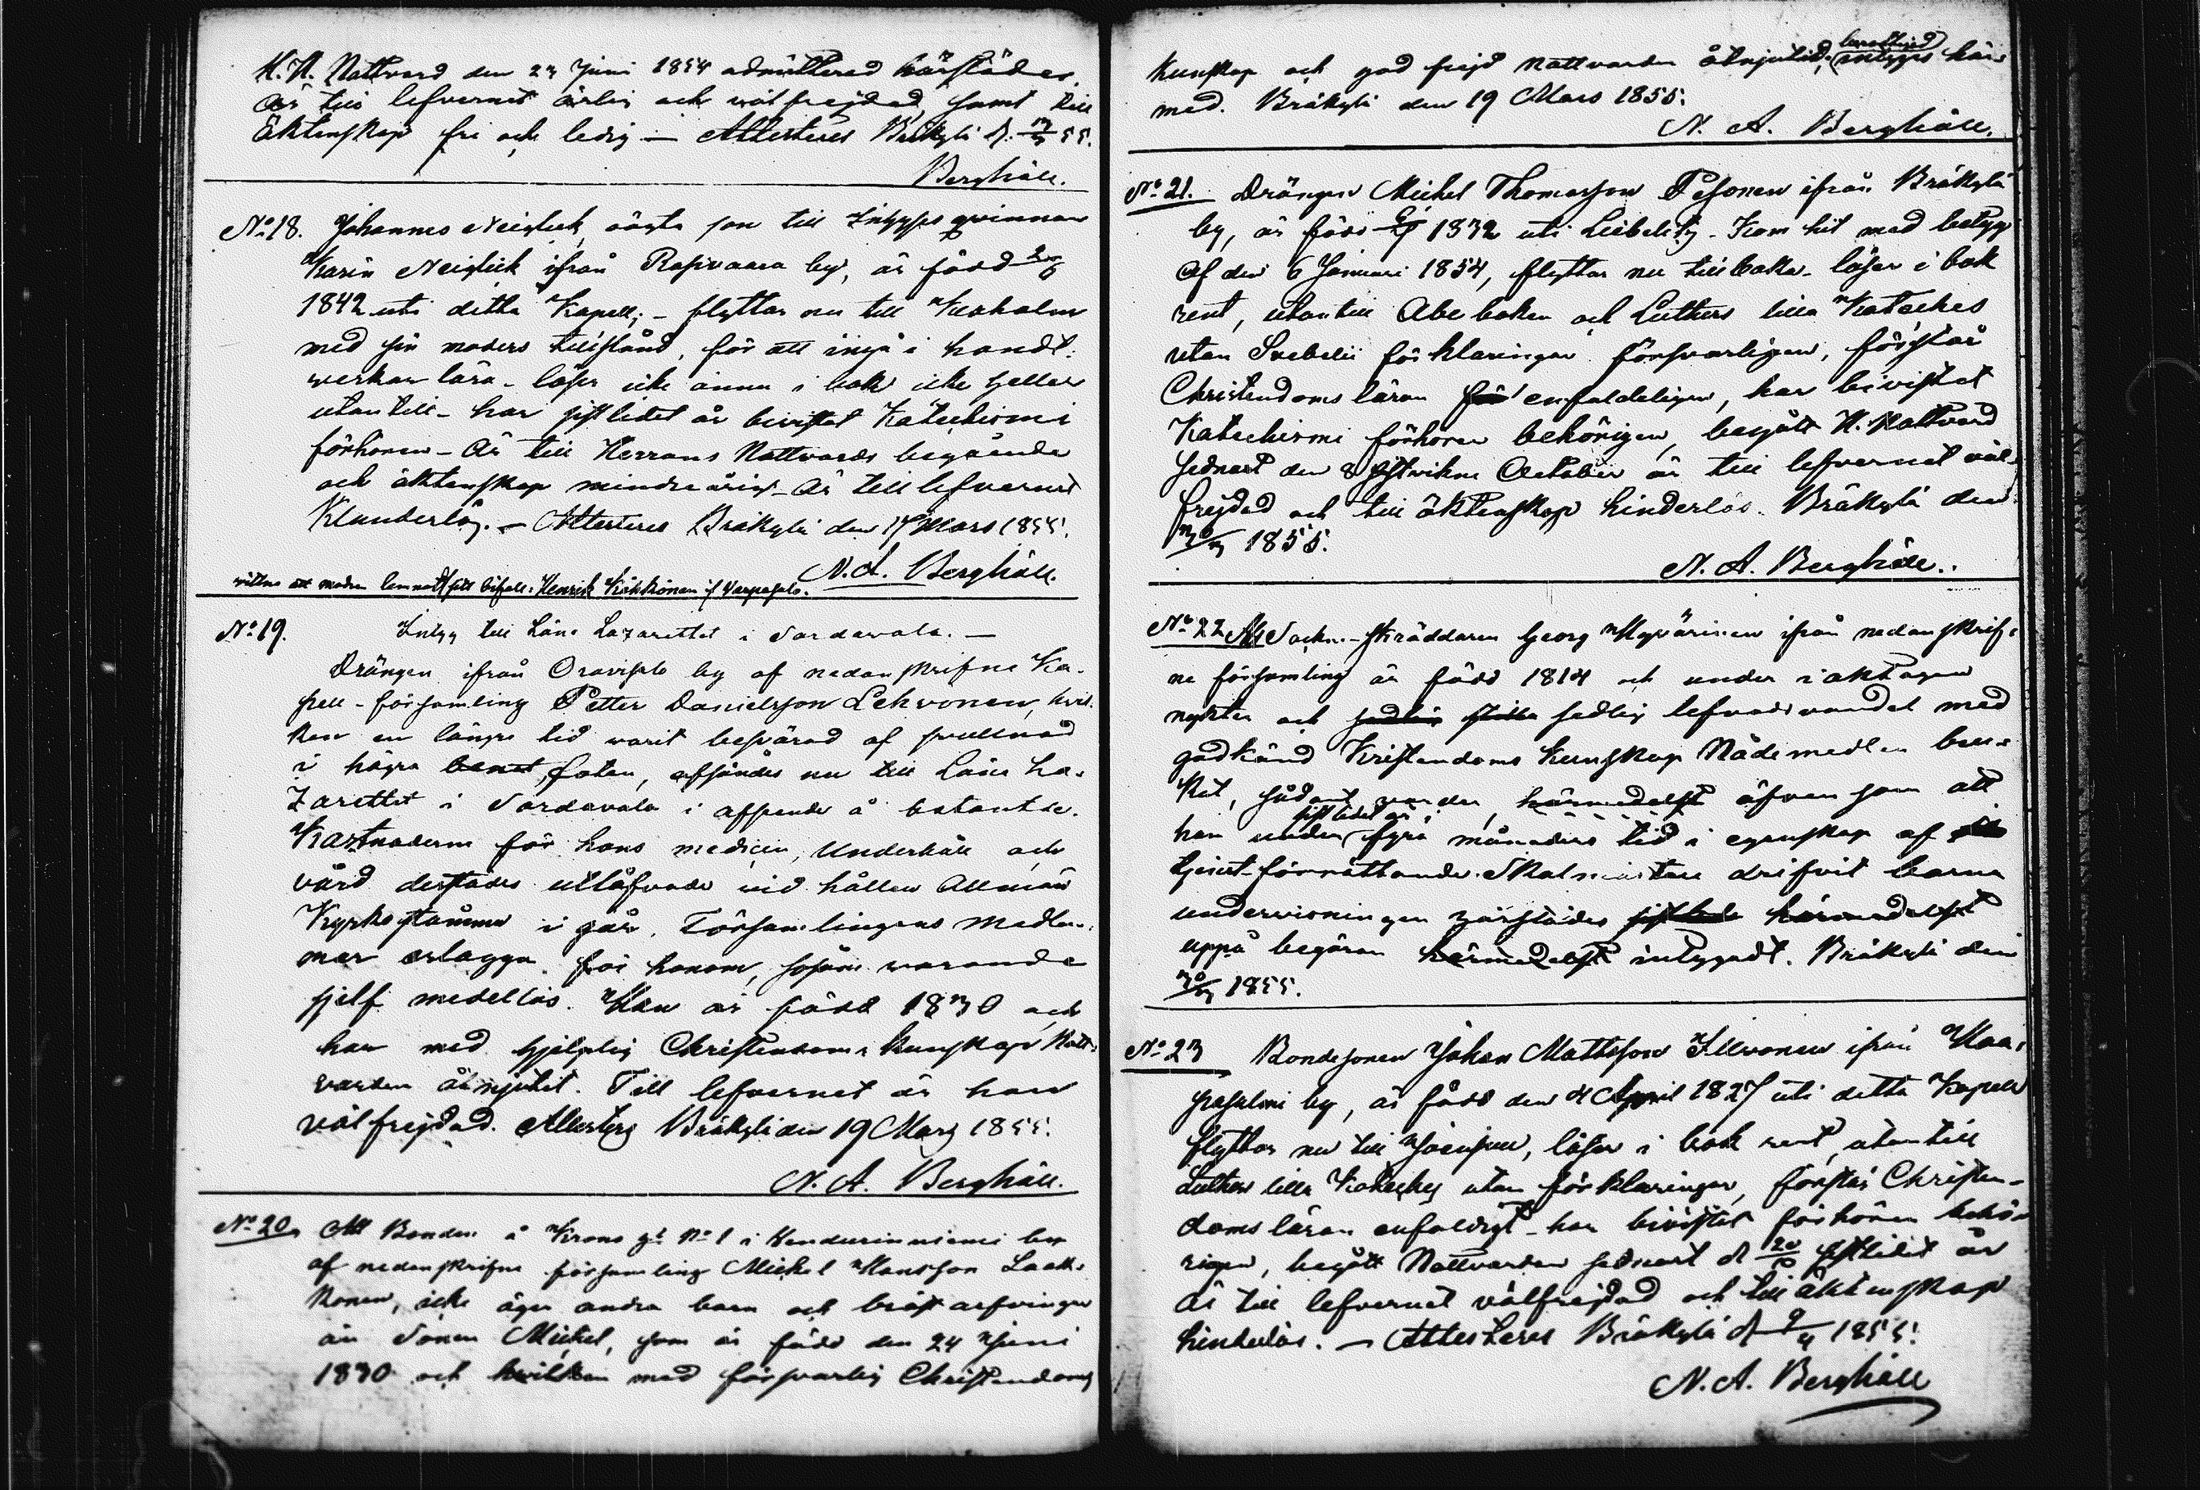 H. H. Nattvard den 24 Juni 1854 admitterad härstädes.
Är till lefvernet ärlig och välfrejdad, samt till
Äktenskap fri och ledig — Attesteres Bräkylä d. 17/3 55.
Berghäll.
No 18. Johannes Neiglick oägta son till Inhyses qvinnan
Karin Neiglick ifrån Rasivaara by, är född
1842 uti detta Kapell; - flyttar nu till Kexholm
med sin moders tillstånd, för att ingå i handt-
werkar lära - läser icke ännu i bok icke heller
utantill - har sistledet år bevistat Katechismi
förhören - Är till Herrans Nattvards begående
och äktenskap minderårig - Är till lefvernet
Klanderlös. - Attesteres Bräkylä den 17 Mars 1855.
N. A. Berghäll.
vittne att modren lemnat sitt bifall: Henrik Kökkönen if Varpasalo.
No 19. Intyg till Läns Lazarettet i Sordavala. —
Drängen ifrån Oravisalo by af nedanskrifne Ka-
pell-församling Petter Danielsson Lehvonen, hvil-
ken en längre tid warit besvärad af svullnad
i högra benet, foten, afsändes nu till Läns La-
zarettet i Sordavala i afseende å botande.
Kostnaderne för hans medicin, Underhåll och
vård derstädes utlåfvade vid hållen Allmän
Kyrkostämma i går, Församlingens medlem-
mar erlägga för honom, såsom warande
sjelf medellös. Han är född 1830 och
har med hjelplig Christendoms kunskap Natt-
varden åtnjutit. Till lefvernet är han
välfrejdad. Attesteras Bräkylä den 19 Mars 1855.
N. A. Berghäll.
No 20. Att Bonden å Krono gd No 1 i Kendurinniemi by
af nedanskrifne församling Mickel Hansson Laak-
konen, icke äger andra barn och bröstarfvingar
än Sonen Mickel, som är född den 24 Juni
1830 och hvilken med försvarlig Christendoms
Kunskap och god frejd nattvarden åtnjutid; intygas här-
med. Bräkylä den 19 Mars 1855.
N. A. Berghäll.
No 21. Drängen Mickel Thomasson Pesonen ifrån Bräkylä
by, är född 1832 uti Libelitz. Kom hit med betyg
af den 6 Januari 1854, flyttar nu tillbaka - läser i bok
rent, utantill Abc boken och Luthers lilla Kateches
utan Svebelii förklaringen försvarligen, förstår
Christendomsläran för enfaldeligen, har bevistat
Katechismi förhören behörigen, begått H. Nattvard
sednast den 8 sistvikne October är till lefvernet väl-
frejdad och till äktenskap hinderlös. Bräkylä den
30/3 1855.
N. A. Berghäll.
No 22 Att Sockne-skräddaren Georg Hyvärinen ifrån nedanskrif-
ne församling är född 1814 och under iaktagen
nykter och sedlig stilla sedlig lefvadsvandel med
godkänd Kristendoms kunskap Nådemedlen bru-
kat, sådant warder härmedelst äfvensom att
han under sistledet år fyra månaders tid i egenskap af
tjenst-förrättande Skolmästare drifvit barna
undervisningen härstädes härmedelst
uppå begäran härmedelst intygadt. Bräkylä den
30/3 1855.
No 23 Bondesonen Johan Mattsson Ilvonen ifrån Haa-
pasalmi by, är född den 4 April 1827 uti detta Kapell
flyttar nu till, läser i bok rent, utantill
Luthers lilla Kateches utan förklaringar, förstår Christen-
domsläran enfaldigt - har bevistat förhören behö-
rigen, begått Nattvarden sednast d. sistledit år
Är till lefvernet välfrejdad och till äktenskap
hinderlös. - Attesteras Bräkylä d. 9/4 1855.
N. A. Berghäll